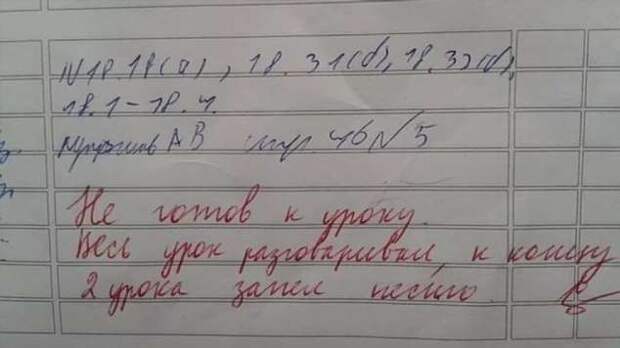 №18.18(а), 18.31(б), 18.32(б),
18.1-18.4.
АВ стр 46 №5
Не готов к уроку.
Весь урок разговаривал, к концу
2 урока запел песню.